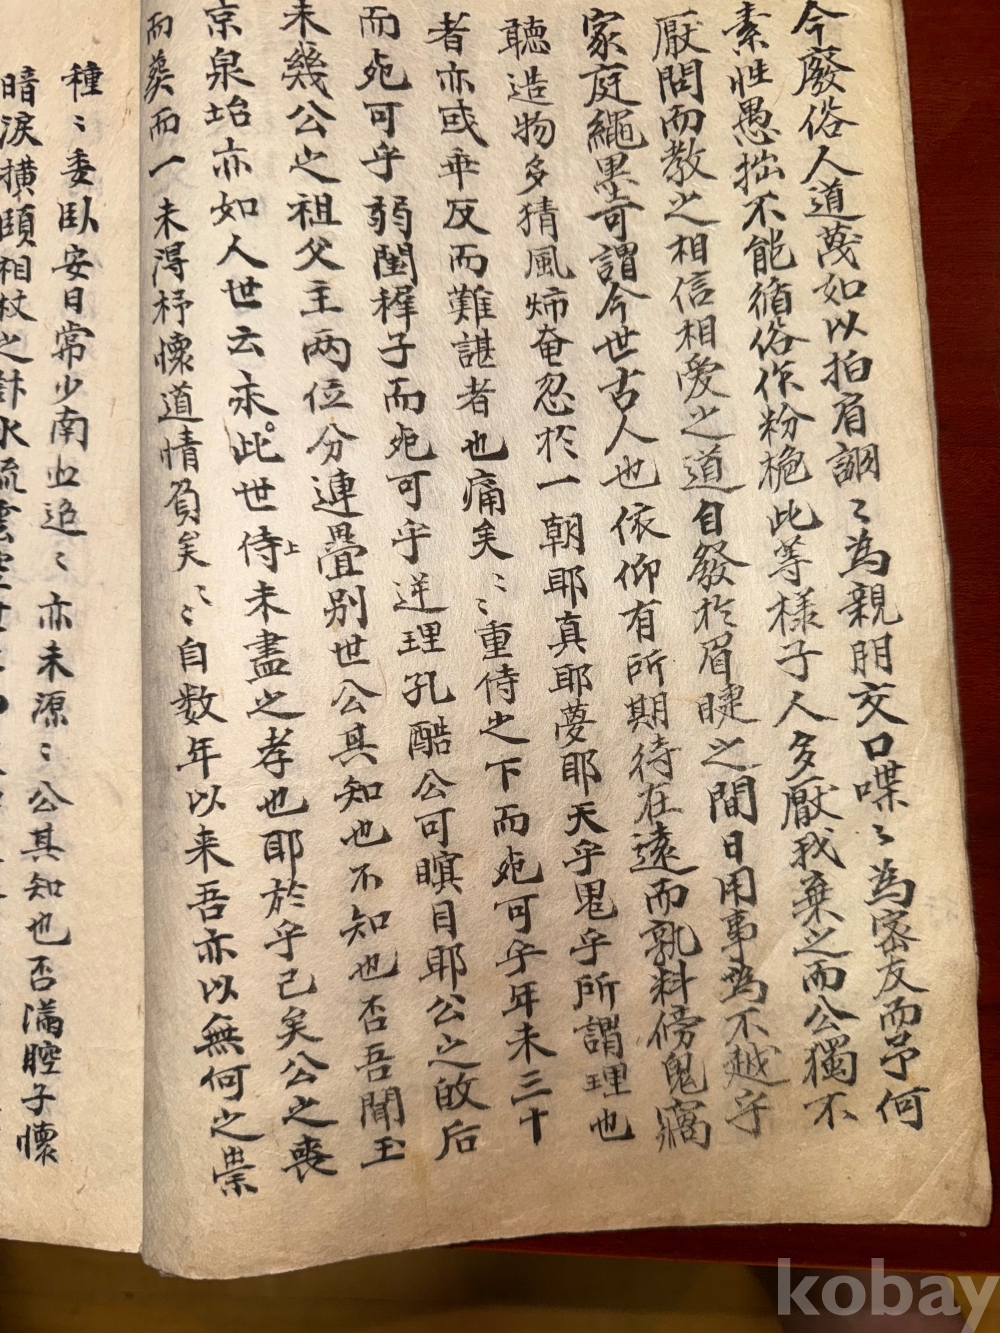 今廢俗人道蔑如以拍肩詡〻為親朋交口喋〻為密友而予何
素性愚拙不能循俗作粉桅此等樣子人多厭我棄之而公獨不
厭問而教之相信相愛之道自發於眉睫之間日用事為不越乎
家庭繩墨可謂今世古人也依仰有所期待在遠而孰料傍鬼竊
聽造物多猜風燭奄忽於一朝耶真耶夢耶天乎鬼乎所謂理也
者亦或乖反而難諶者也痛矣〻〻重侍之下而死可乎年未三十
而死可乎弱閨稚子而死可乎逆理孔酷公可瞑目耶公之故后
未幾公之祖父主兩位分連疊別世公其知也不知也否吾聞玉
京泉坮亦如人世云未此世侍上未盡之孝也耶於乎已矣公之喪
而葬而一未得抒懷道情負矣〻〻自數年以来吾亦以無何之祟
種〻委臥安日常少南北迨〻亦未源〻公其知也否滿腔子懷
暗淚橫頤相杖之計水流雲空
kobay